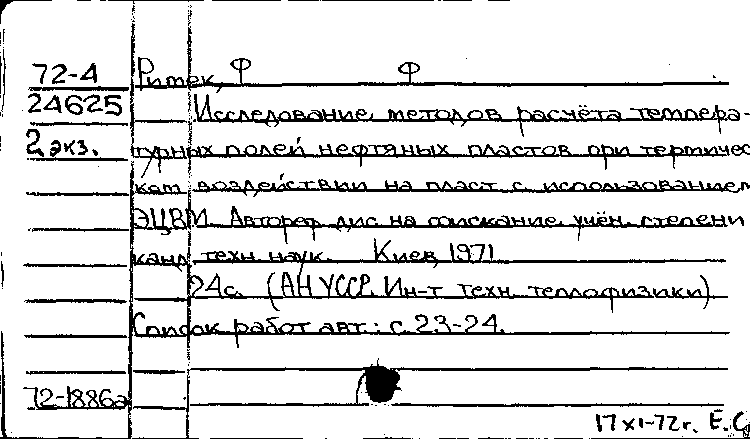 72-4 Ритек, Ф Ф
24625 Исследование методов расчёта темпера-
2 экз. турных полей нефтяных пластов при термичес
ком воздействии на пласт с использованием
ЭЦВМ. Автореф дис на соискание учён. степени
канд. техн. наук. Киев, 1971
24с. (АН УССР. Ин-т техн. теплофизики).
Список работ авт.: с. 23-24.
72-1886а
17 XI-72 г. Е.С